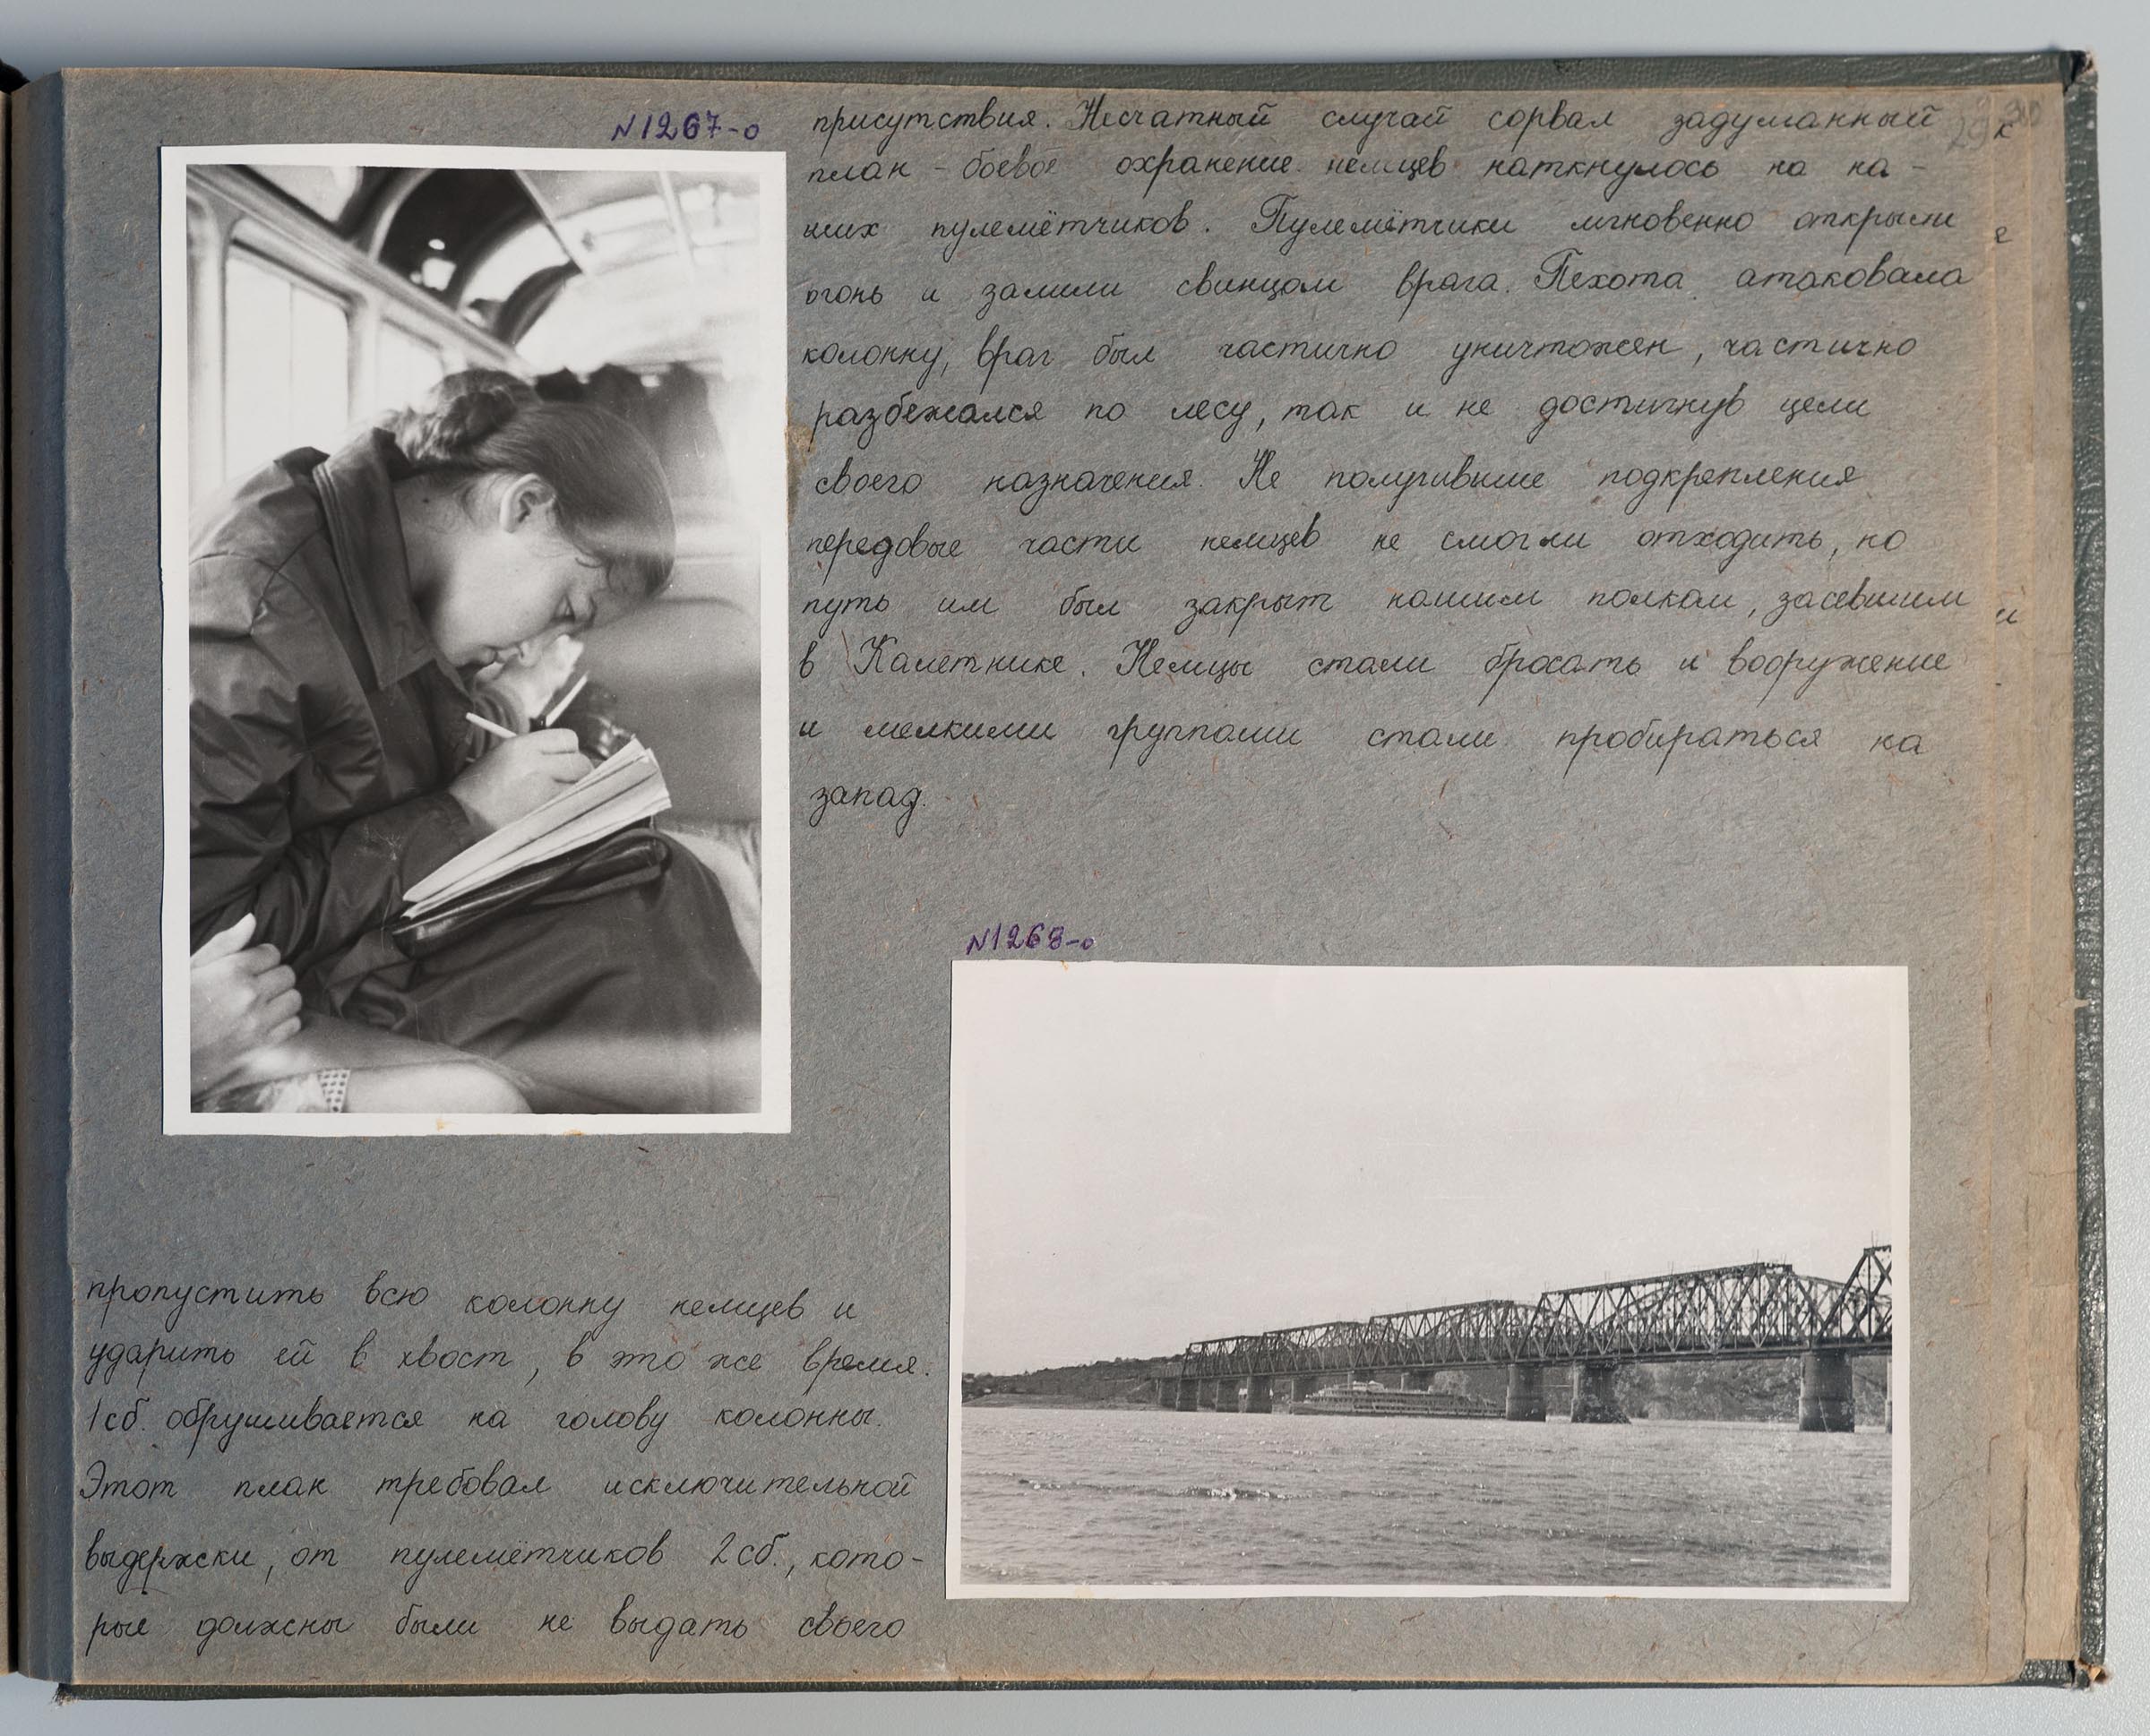 N1267-о
пропустить всю колонну немцев и
ударить ей в хвост, в это же время
1сб. обрушивается на голову колонны.
Этот план требовал исключительной
выдержки, от пулемётчиков 2сб., кото-
рые должны были не выдать своего
присутствия. Несчатный случай сорвал задуманный
план - боевое охранение немцев наткнулось на на-
ших пулемётчиков. Пулемётчики мгновенно открыли
огонь и залили свинцом врага. Пехота атаковала
колонну, враг был частично уничтожен, частично
разбежался по лесу, так и не достигнув цели
своего назначения. Не получившие подкрепления
передовые части немцев не смогли отходить, но
путь им был закрыт нашим полком, засевшим
в Калетнике. Немцы стали бросать и вооружение
и мелкими группами стали пробираться на
запад.
N1268-о